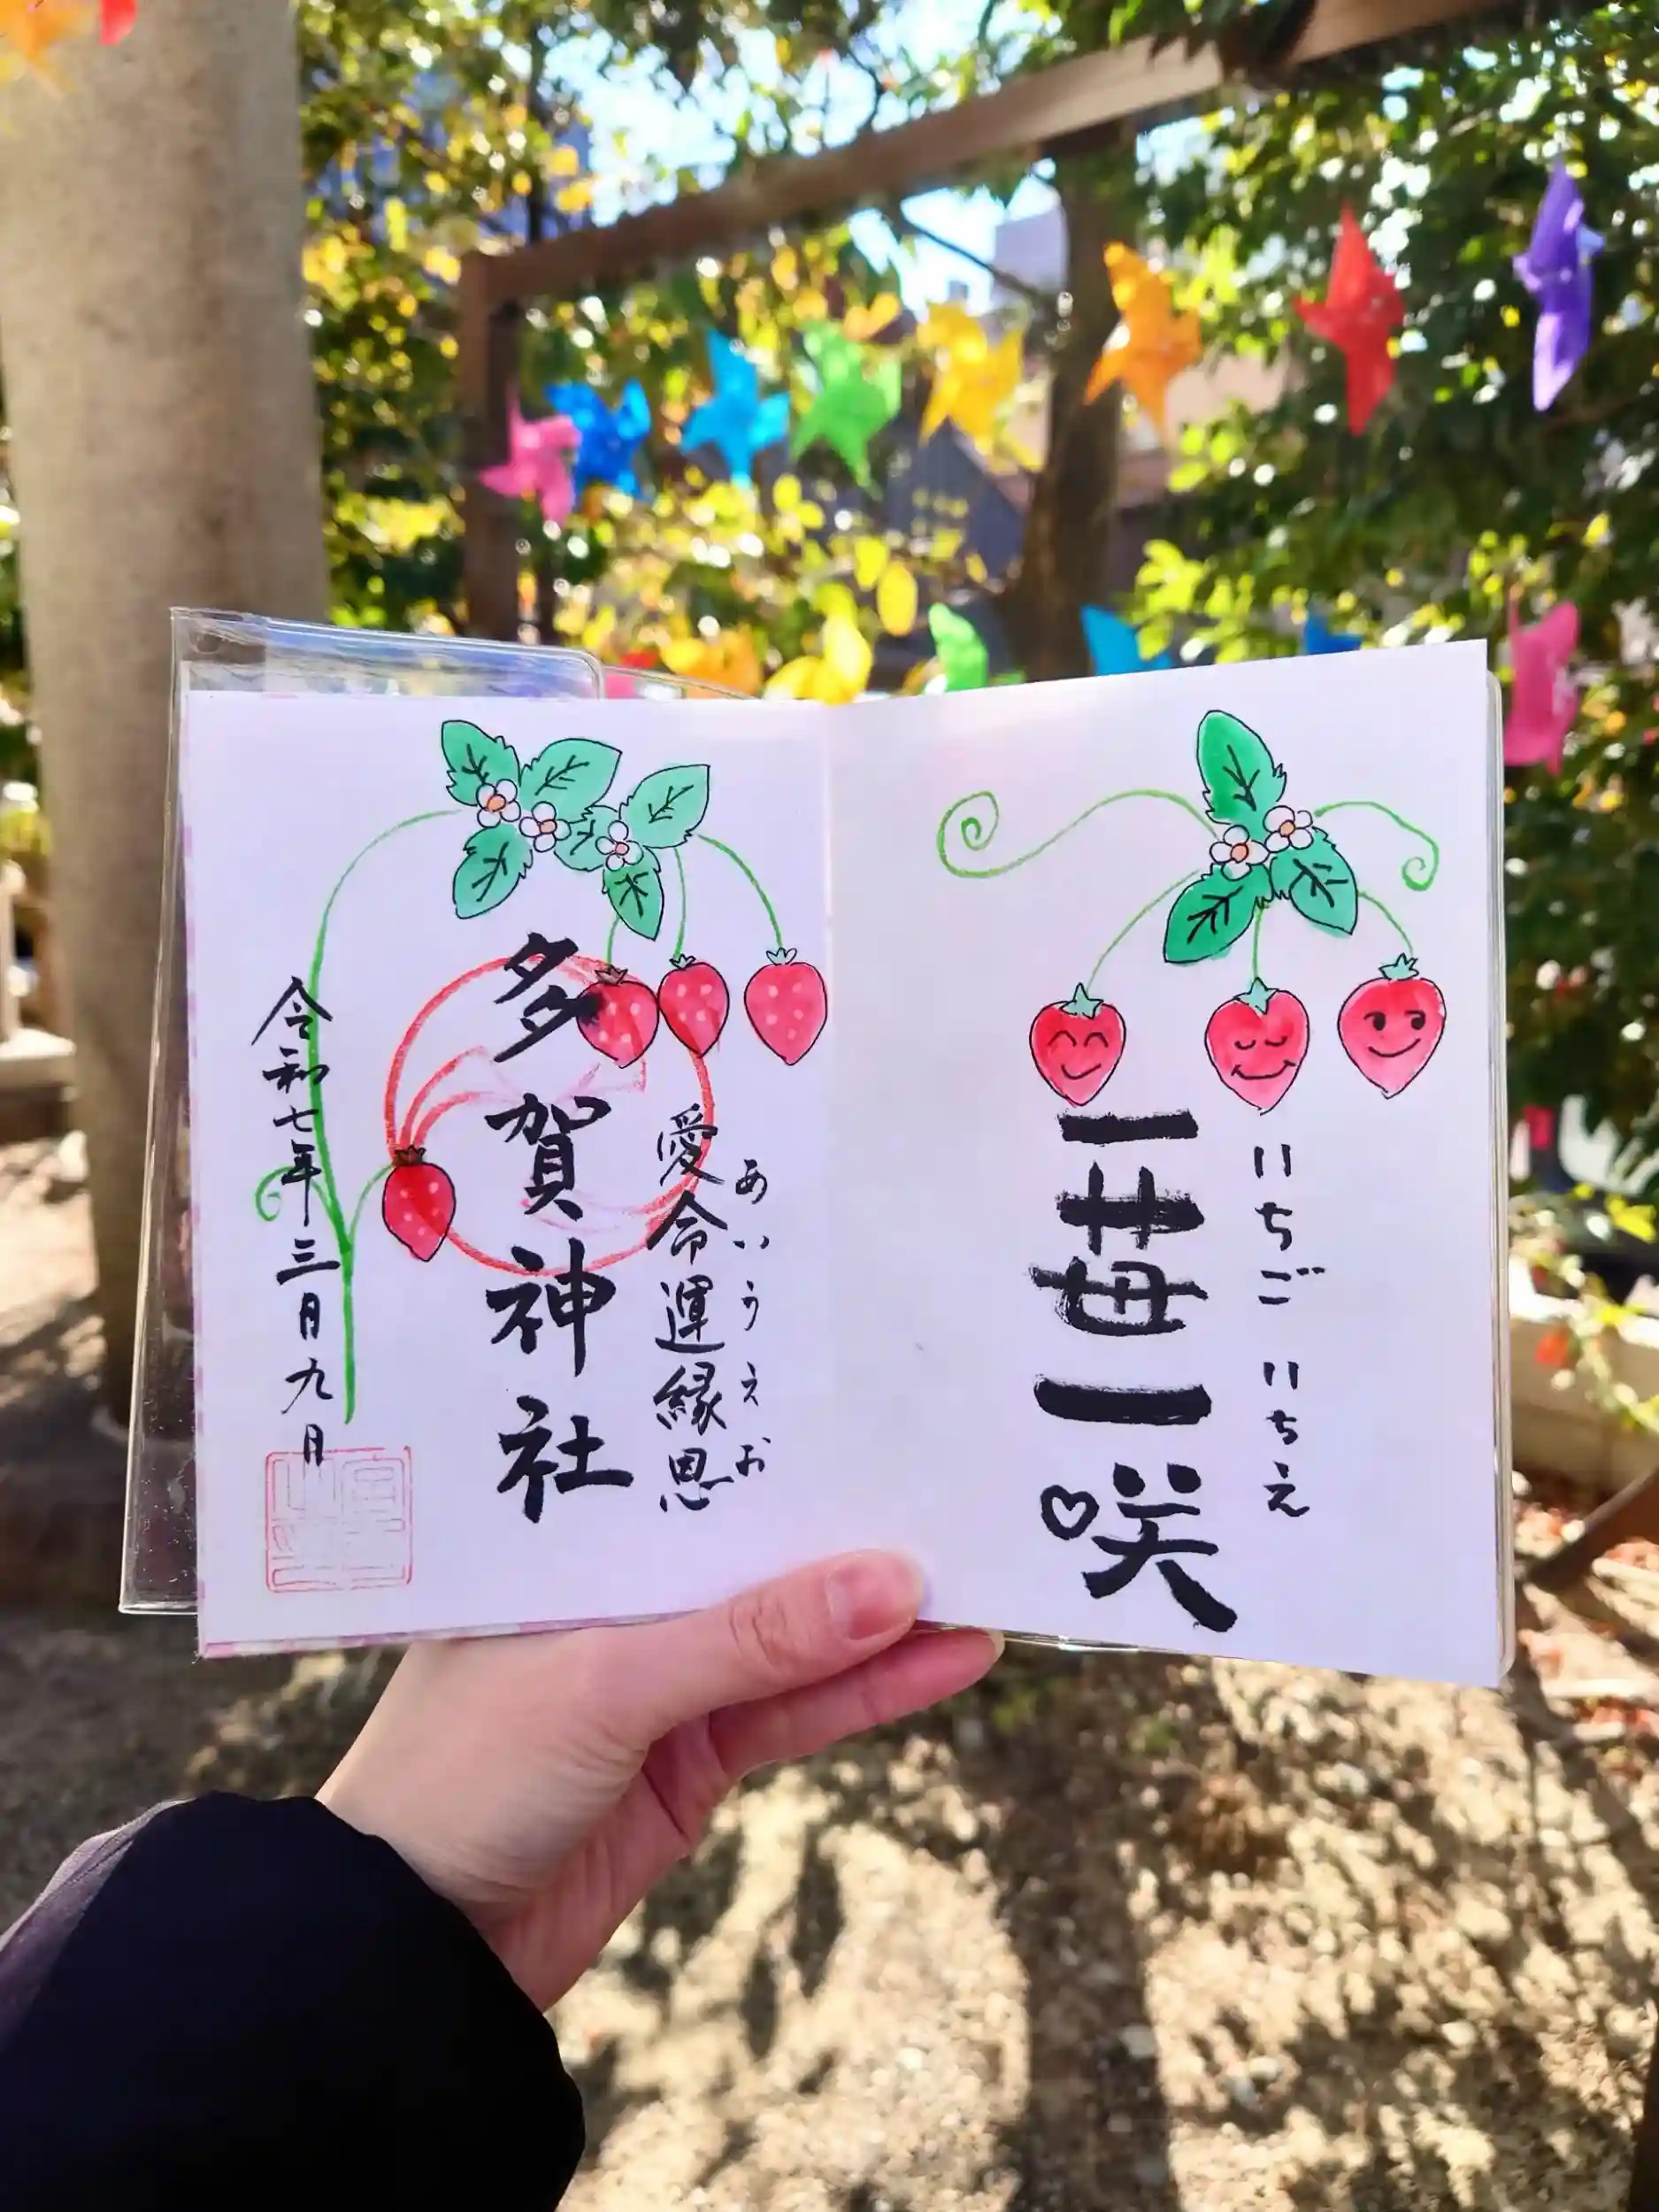 一苺一咲
いちご いちえ
あいうえお
愛命運縁恩
多賀神社
令和七年三月九日